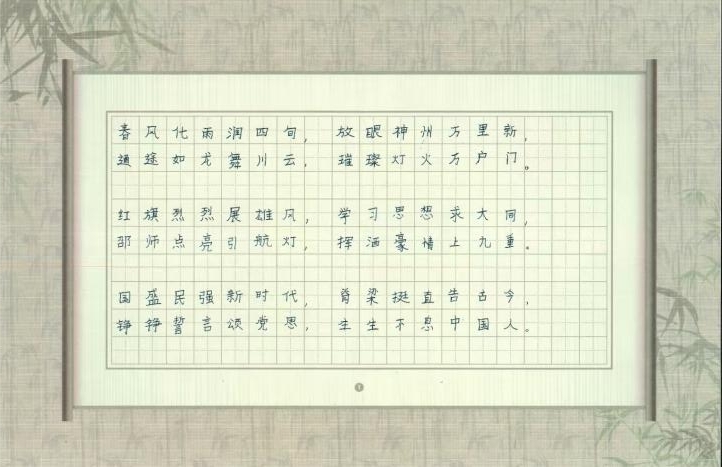 春风化雨润四旬，放眼神州万里新，
通途如龙舞川云，璀璨灯火万户门。
红旗烈烈展雄风，学习思想求大同，
邵师点亮引航灯，挥洒豪情上九重。
国盛民强新时代，脊梁挺直告古今，
铮铮誓言颂党恩，生生不息中国人。
1